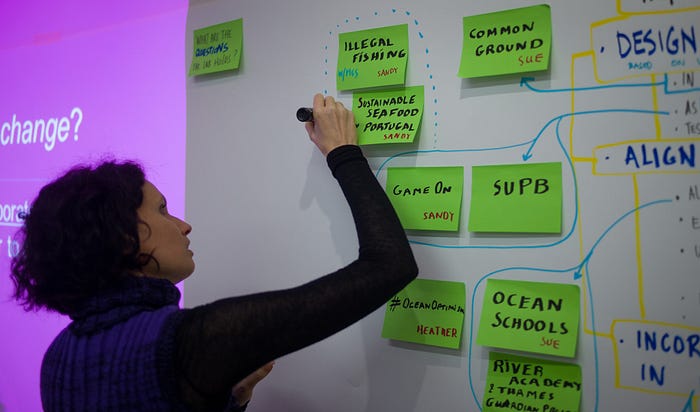 change?
WHAT ARE THE
QUESTIONS
ILLEGAL
FISHING
SANDY
SUSTAINABLE
SEAFOOD
PORTUGAL
SANDY
COMMON
GROUND
SUE
GAME ON
SANDY
SUPB
#OCEANOPTIMISM
HEATHER
OCEAN
SCHOOLS
SUE
RIVER
ACADEMY
THAMES
DESIGN
BASED ON
IN
AS
ALIGN
INCOR
IN